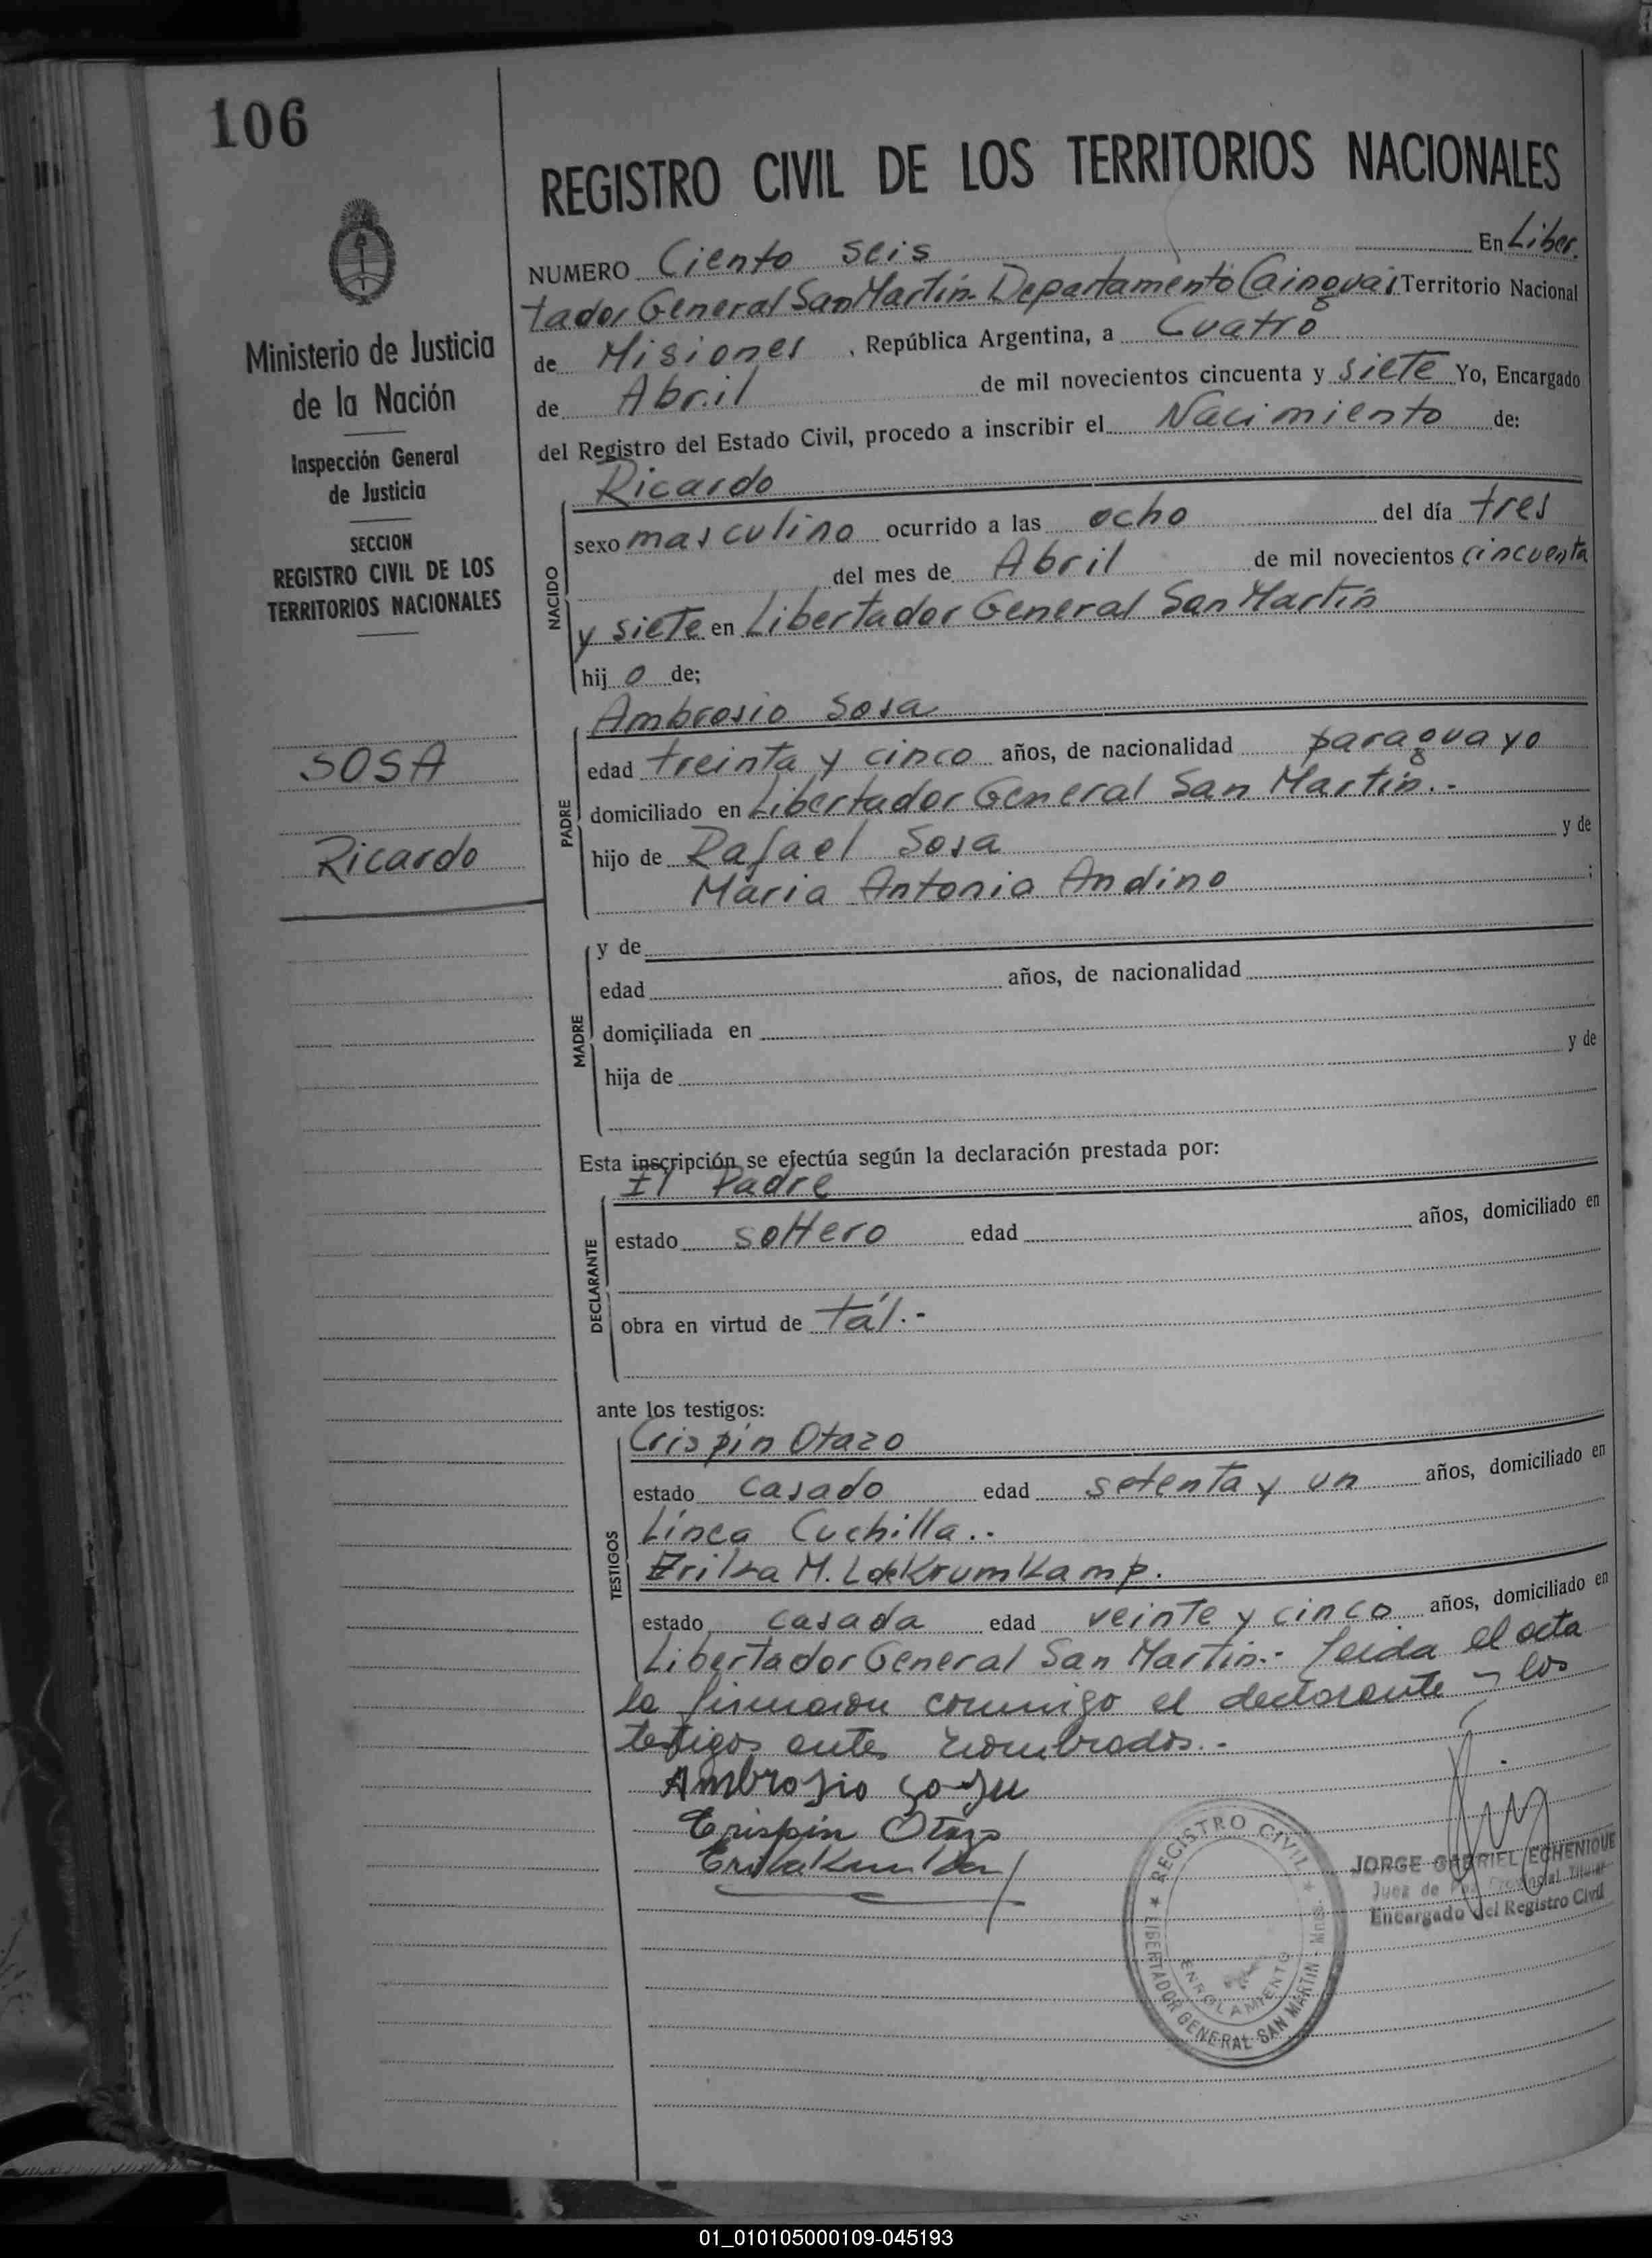 106
REGISTRO CIVIL DE LOS TERRITORIOS NACIONALES
NUMERO Ciento seis En Liber.
tador General San Martín.- Departamento Cainguás Territorio Nacional
de Misiones , República Argentina, a Cuatro
de Abril de mil novecientos cincuenta y siete Yo, Encargado
del Registro del Estado Civil, procedo a inscribir el Nacimiento de:
Ministerio de Justicia
de la Nación
Inspección General
de Justicia
SECCION
REGISTRO CIVIL DE LOS
TERRITORIOS NACIONALES
SOSA
Ricardo
NACIDO
Ricardo
sexo masculino ocurrido a las ocho del día tres
del mes de Abril de mil novecientos cincuenta
y siete en Libertador General San Martín
hijo de;
PADRE
Ambrosio Sosa
edad treinta y cinco años, de nacionalidad paraguayo
domiciliado en Libertador General San Martín.-
hijo de Rafael Sosa y de
Maria Antonia Andino ;
MADRE
y de
edad años, de nacionalidad
domiciliada en
hija de y de
Esta inscripción se efectúa según la declaración prestada por:
DECLARANTE
El Padre
estado soltero edad años, domiciliado en
obra en virtud de tál.-
ante los testigos:
TESTIGOS
Crispín Otazo
estado casado edad setenta y un años, domiciliado en
Línea Cuchilla..
M. L de Krumkamp.
estado casada edad veinte y cinco años, domiciliado en
Libertador General San Martín.- Leida el acta
la firmaron conmigo el declarante y los
testigos antes nombrados.-
Ambrosio Sosa
Crispin Otazo
REGISTRO CIVIL
LIBERTADOR GENERAL SAN MARTIN
ENROLAMIENTO
JORGE GABRIEL ECHENIQUE
Juez de Paz Provincial Titular
Encargado del Registro Civil
01_010105000109-045193